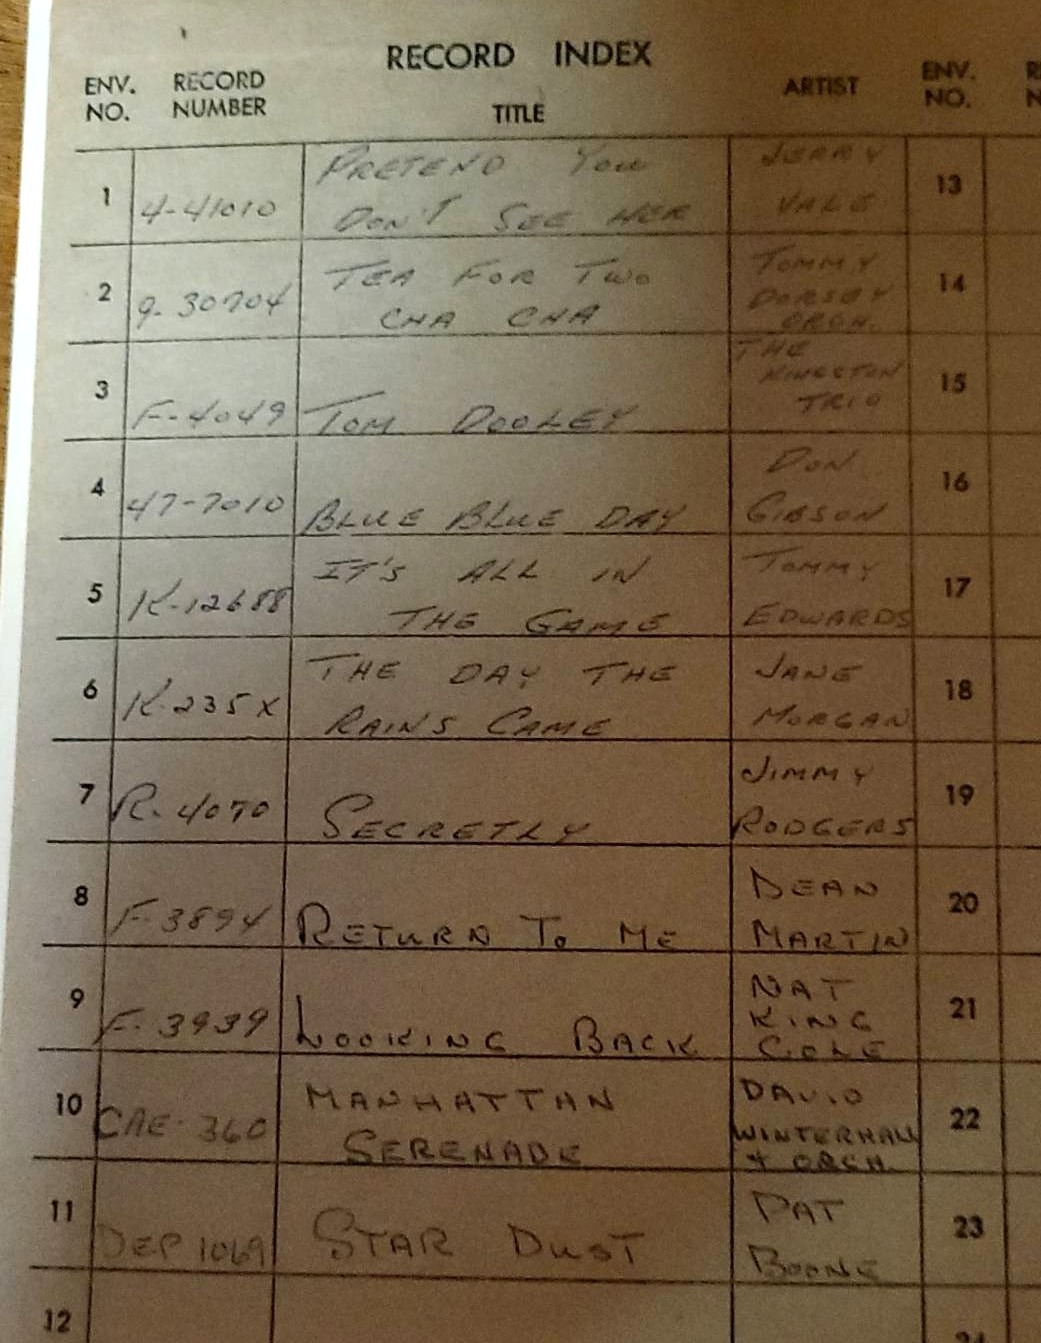 RECORD INDEX
ENV. NO. RECORD NUMBER TITLE ARTIST ENV. NO.
1 4-41010 PRETEND YOU DON'T SEE HER JERRY VALE 13
2 9-30704 TEA FOR TWO CHA CHA TOMMY DORSEY ORCH. 14
3 F-4049 TOM DOOLEY THE KINGSTON TRIO 15
4 47-7010 BLUE BLUE DAY DON GIBSON 16
5 K-12688 IT'S ALL IN THE GAME TOMMY EDWARDS 17
6 K-235X THE DAY THE RAINS CAME JANE MORGAN 18
7 R-4070 SECRETLY JIMMY RODGERS 19
8 F-3894 RETURN TO ME DEAN MARTIN 20
9 F-3939 LOOKING BACK NAT KING COLE 21
10 CAE-360 MANHATTAN SERENADE DAVID WINTERHALL + ORCH. 22
11 DEP 1069 STAR DUST PAT BOONE 23
12